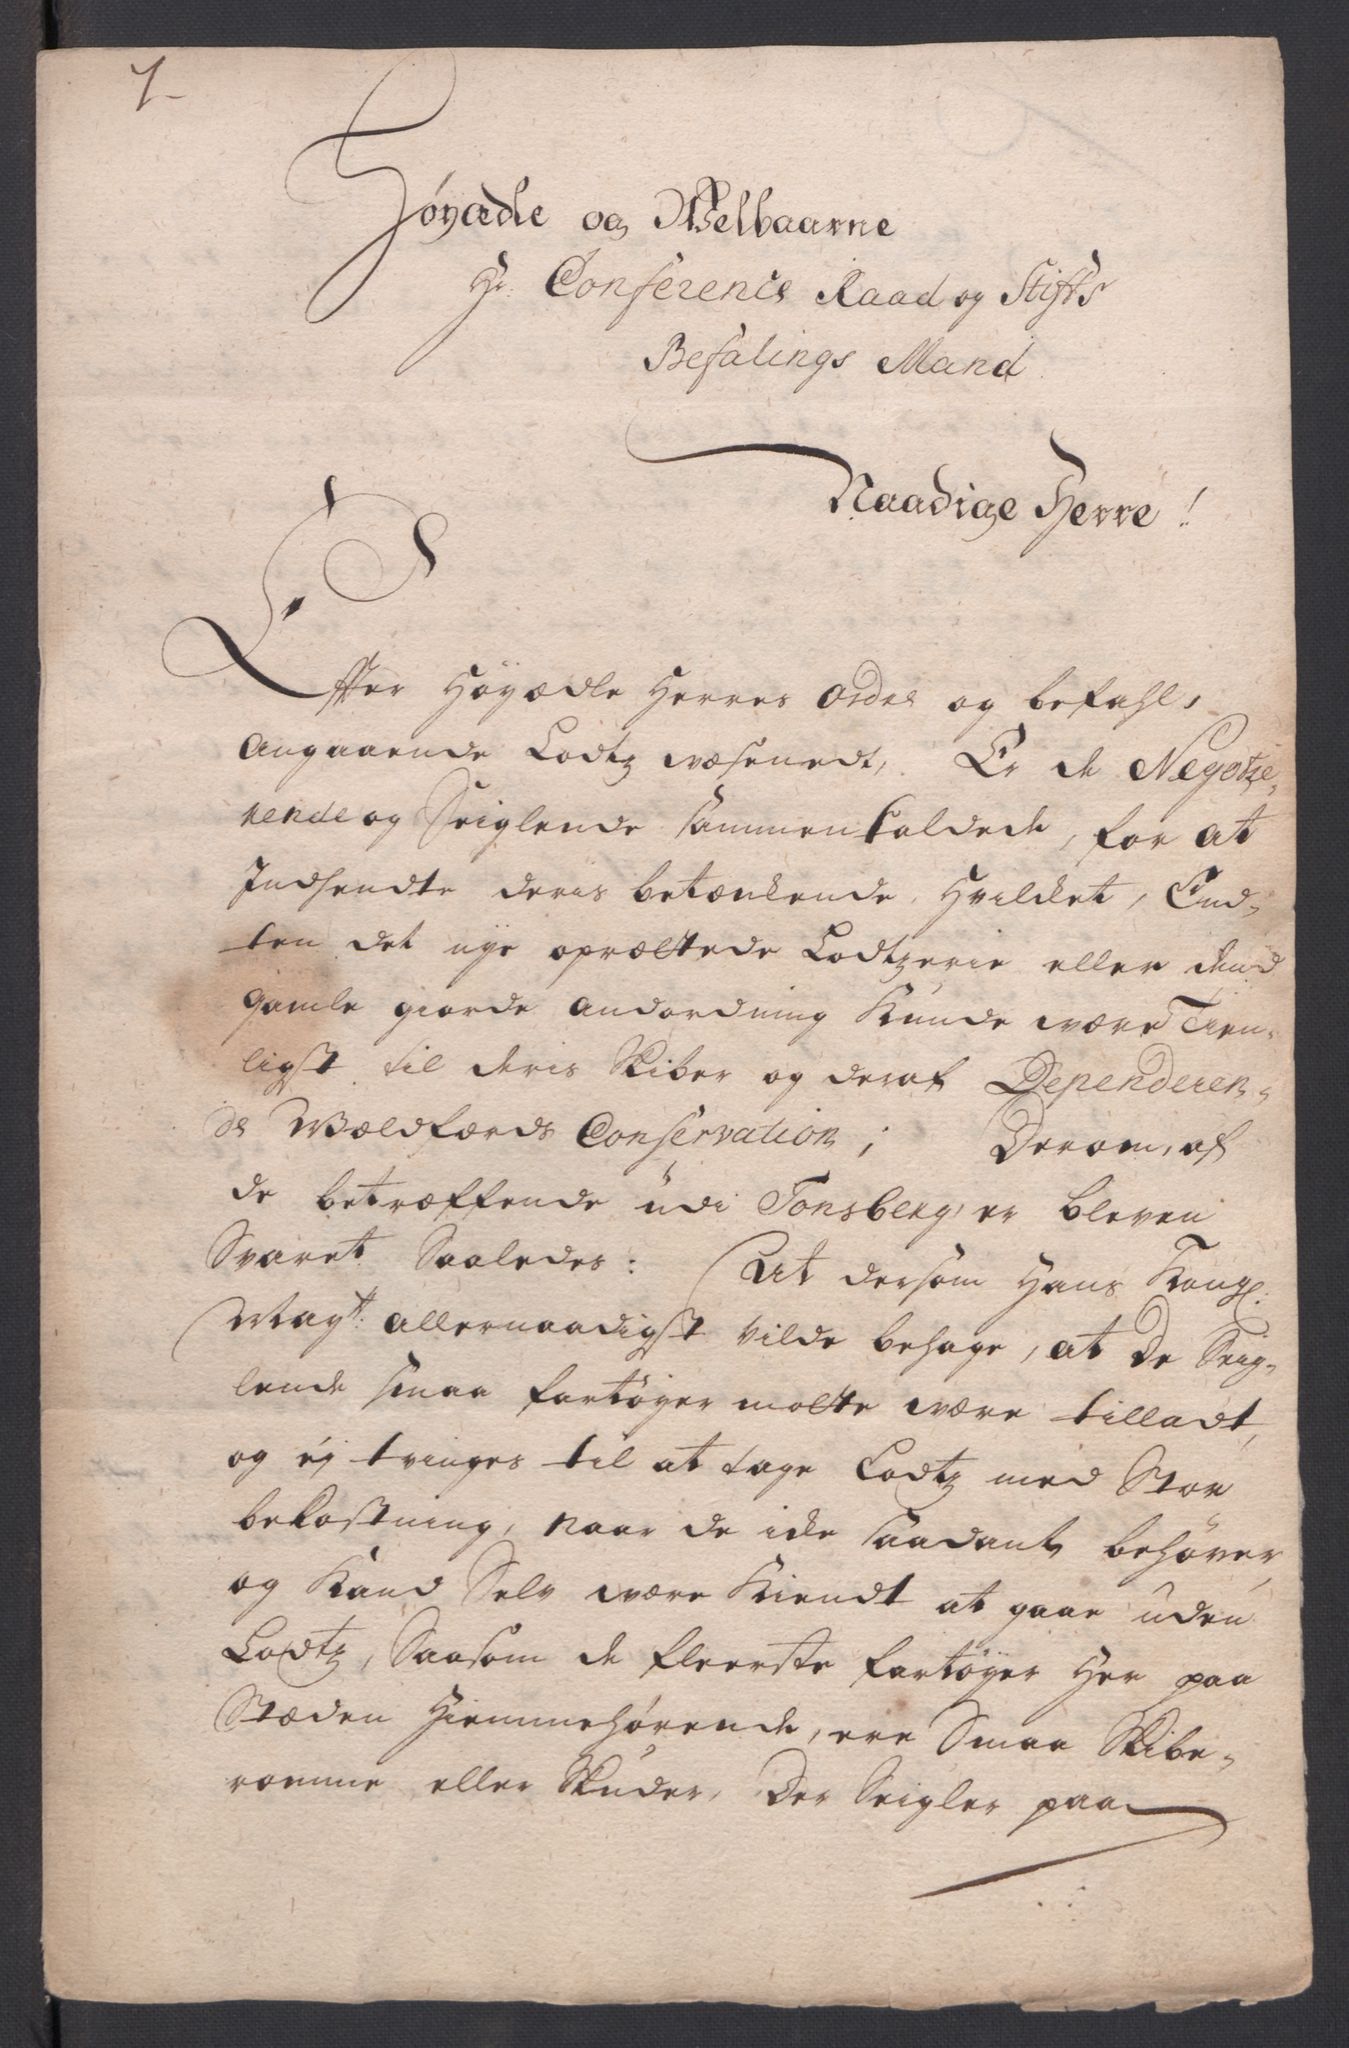 7-
Høyædle og Welbaarne
Hr: Conferenc Raad og Stifts
Befalings Mand
Naadige Herre!
Effter Høyædle Herres Ordre og befahl,
Angaaende Lodtz væsenedt, Er de Negotze-
rende og Seiglende sammenkaldede, for at
Indsendte deris betænkende, Hvilket, End-
ten det nye oprættede Lodtzerie eller dend
gamle giorde andordning kunde være Tien-
ligst til deris Skiber og deraf Dependeren-
de Wældfærds Conservation; Derom, af
de betræffende udi Tonsberg, er bleven
Svaret Saaledes: At dersom Hans Kongl:
Mayt: allernaadigst vilde behage, at De Seig-
lende smaa fartøyer motte være tilladt,
og ej tvinges til at tage Lodtz med Stor
bekostning, naar de icke saadant behøver,
og kand Selv være kiendt at gaae uden
Lodtz, Saasom de fleerste fartøyer Her paa
Stæden Hiemmehørende, ere Smaa Skibe-
romme eller Skuder, Der Seigler paa